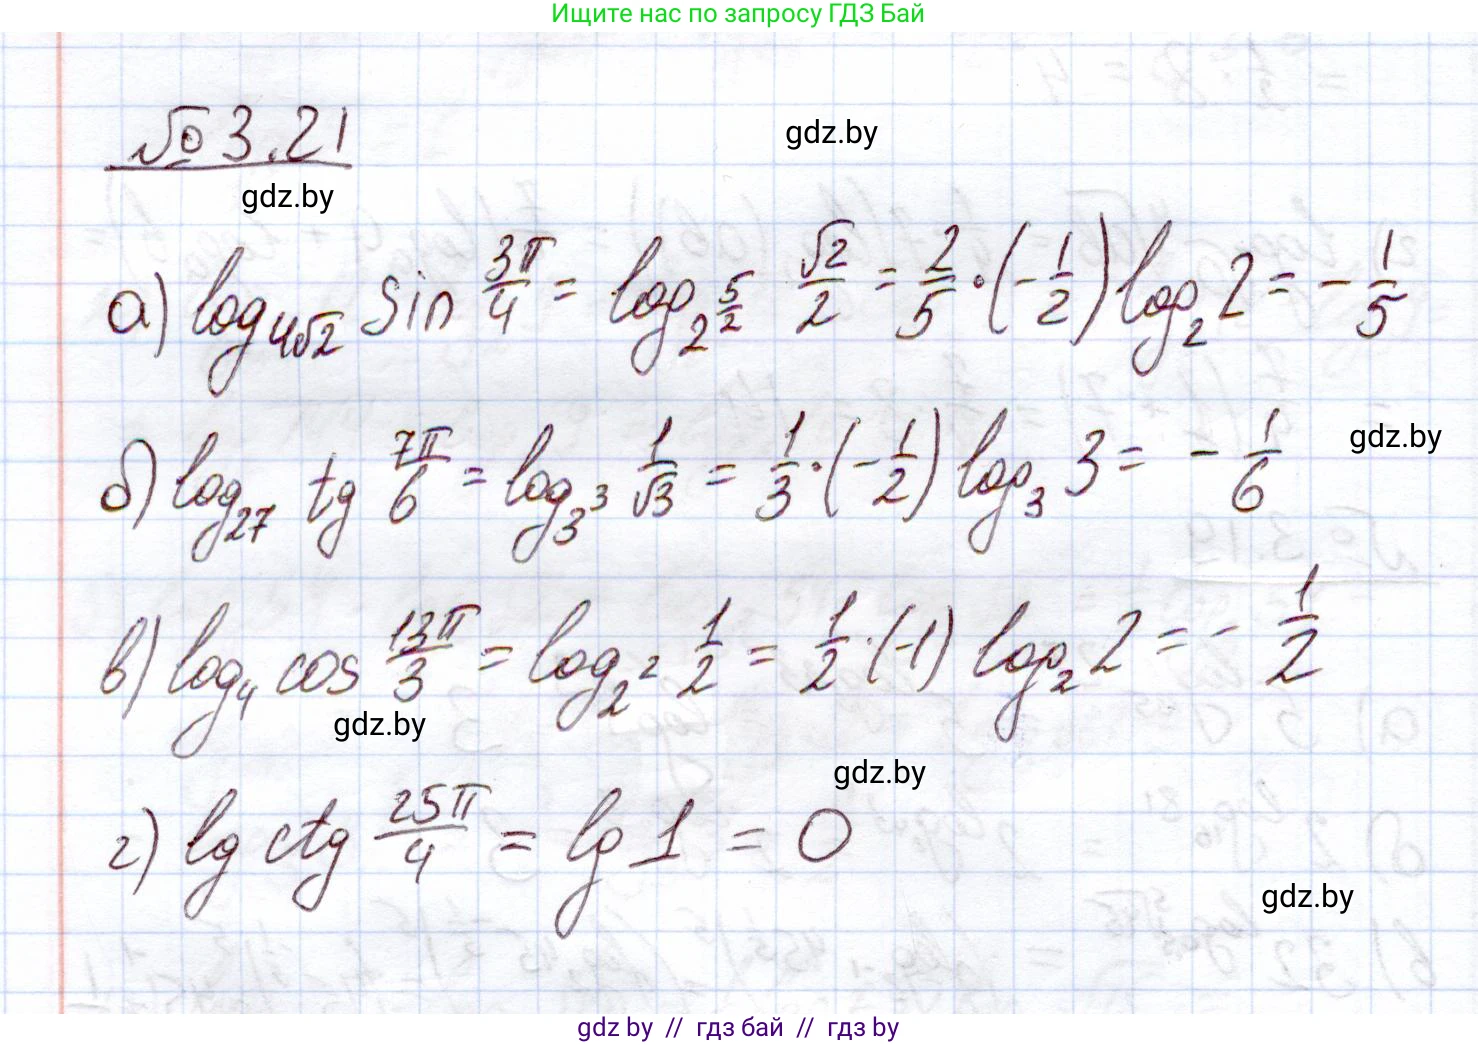 Ищите нас по запросу ГДЗ Бай
№ 3.21
gdz.by
gdz.by
а) log_{4√2} sin 3π/4 = log_{2^{5/2}} √2/2 = 2/5 · (-1/2) log_2 2 = - 1/5
б) log_{27} tg 7π/6 = log_{3^3} 1/√3 = 1/3 · (-1/2) log_3 3 = - 1/6
gdz.by
в) log_4 cos 13π/3 = log_{2^2} 1/2 = 1/2 · (-1) log_2 2 = - 1/2
gdz.by
gdz.by
г) lg ctg 25π/4 = lg 1 = 0
gdz.by
gdz by // гдз бай // гдз by